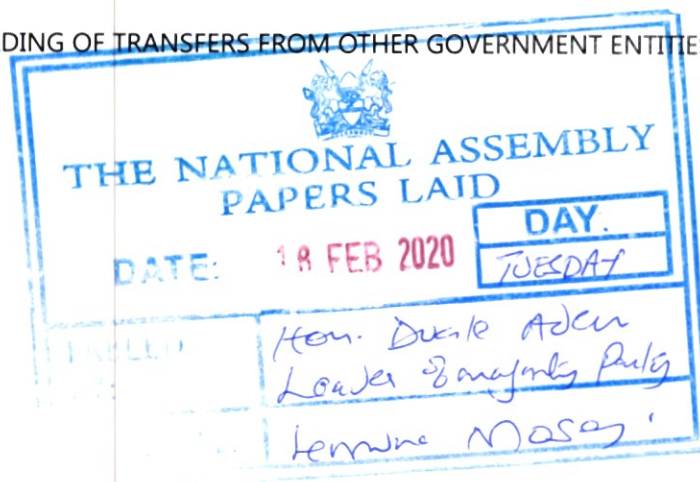 DING OF TRANSFERS FROM OTHER GOVERNMENT ENTITIE
THE NATIONAL ASSEMBLY
PAPERS LAID
DATE: 18 FEB 2020
DAY.
TUESDAY
Hon. Duale Aden
Leader of majority Party